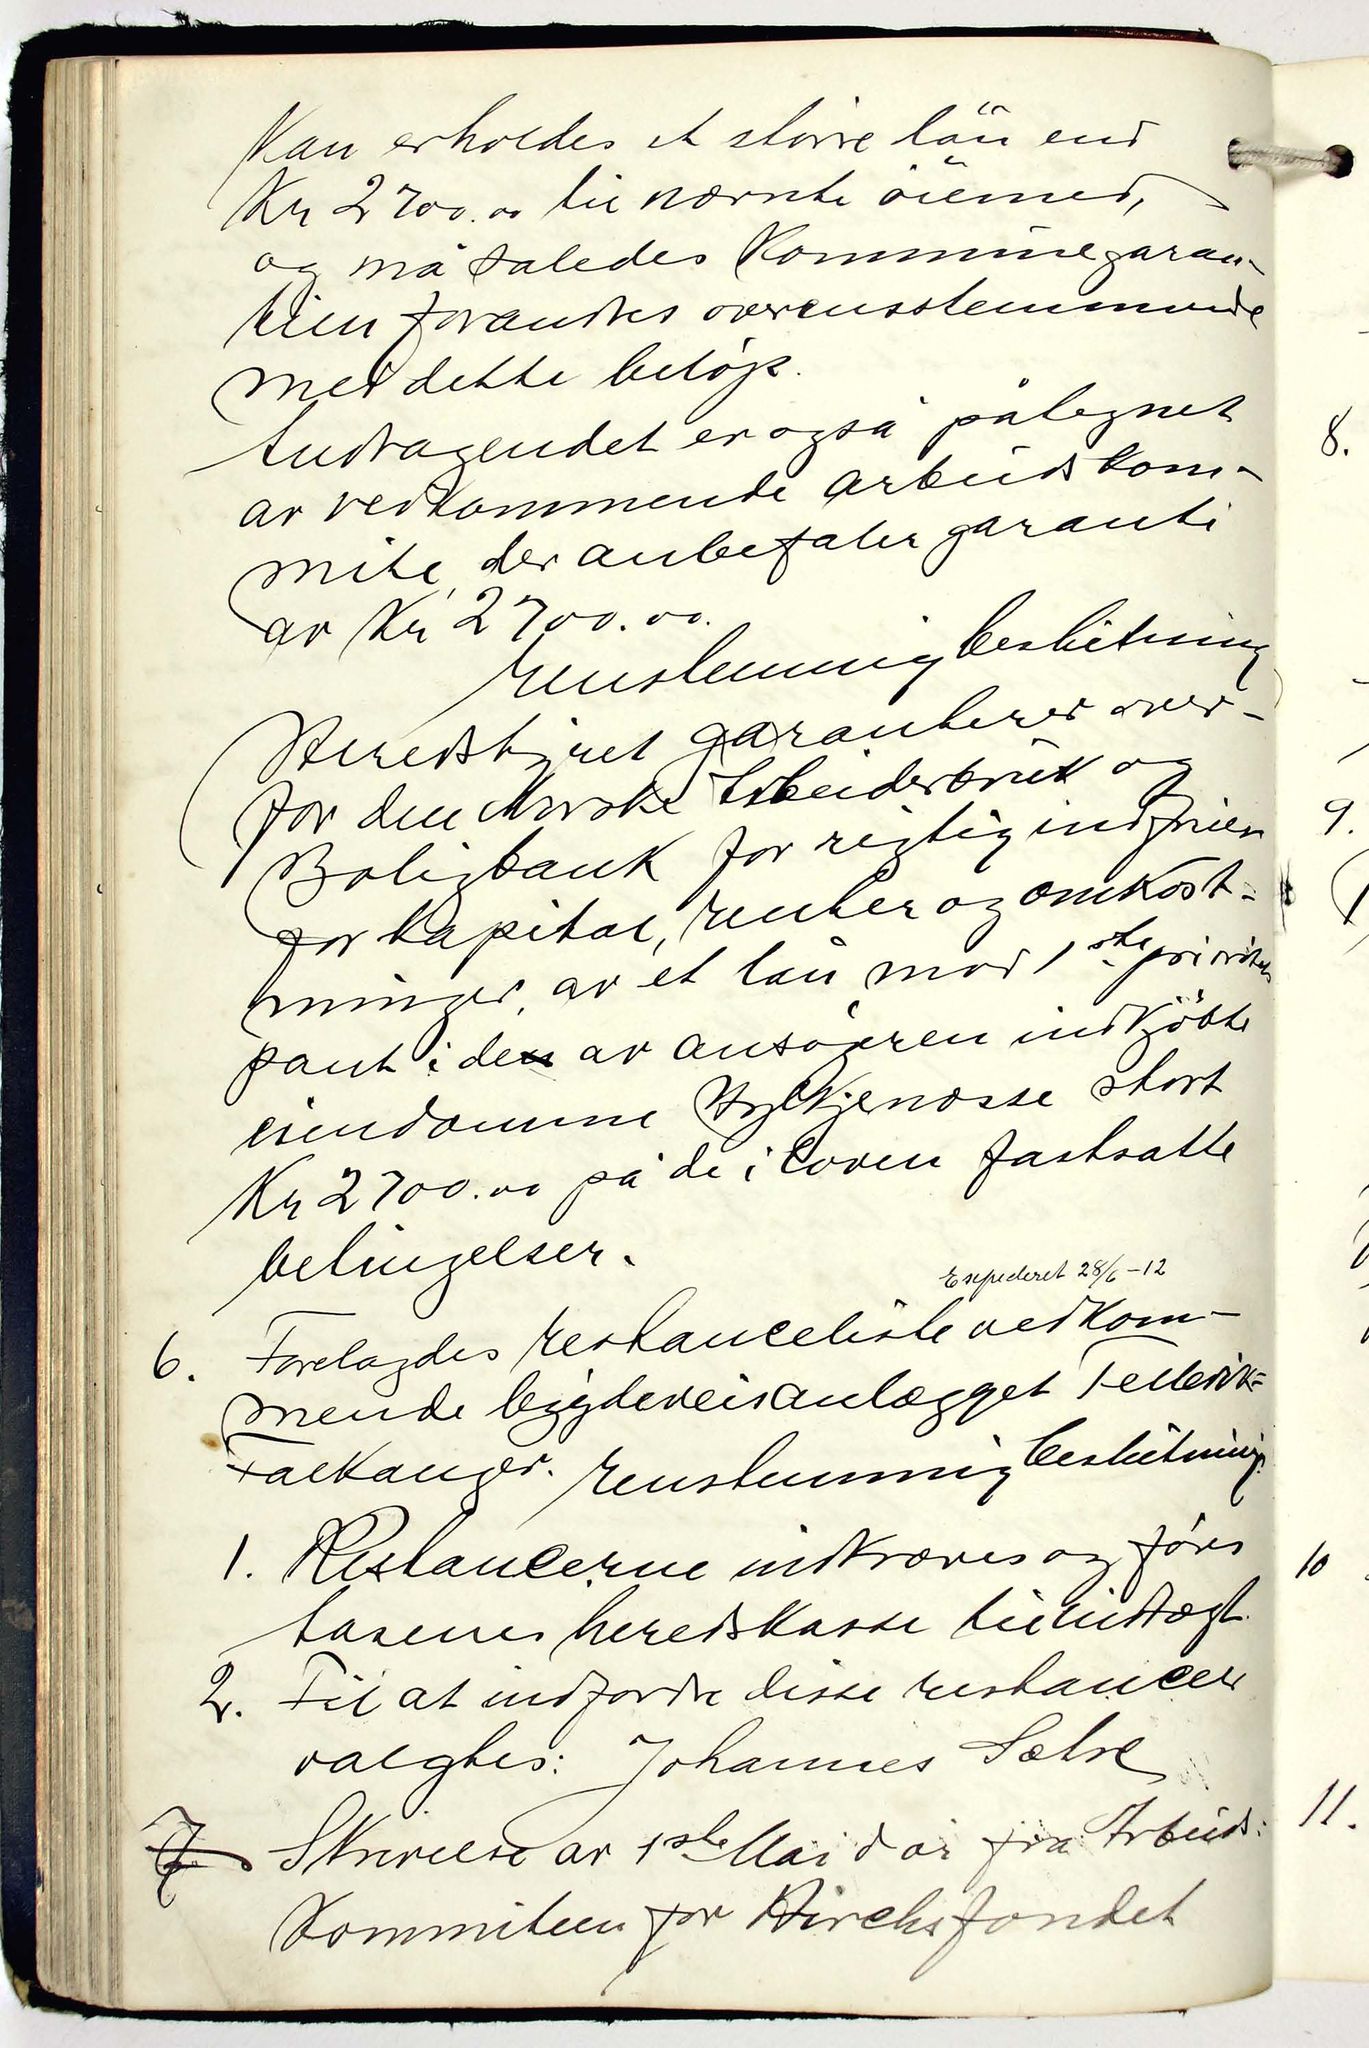 Kan erholdes et större lån end
Kr 2700.00 til nævnte öiemed,
og må således Kommunegaran-
tien forandres overensstemmende
med dette belöp.
Andragendet er også påtegnet
av vedkommende arbeidskom-
mite, der anbefaler garanti
av Kr 2700.00.
Enstemmig beslutning
Heredstyret garanterer over-
for den Norske Arbeiderbruk og
Boligbank for rigtig indfrielse
for Kapital, renter og omkost-
ninger, av et lån mod 1ste prioritets
pant i den av ansögeren indkjöbte
eiendomme stort
Kr 2700.00 på de i loven fastsatte
betingelser.
Expederet 28/6-12
6. Forelagdes restanceliste vedkom-
mende bygdeveisanlægget Tellevik-
Falkanger. Enstemmig beslutning:
1. Restancerne indkræves og föres
Aasenes heredskasse til indtægt.
2. Til at indfordre disse restancer
valgtes: Johannes Sætre
7 Skrivelse av 1ste Mai d år fra Arbeids:
Kommiteen for Hirchsfondet
8.
9.
10
11.